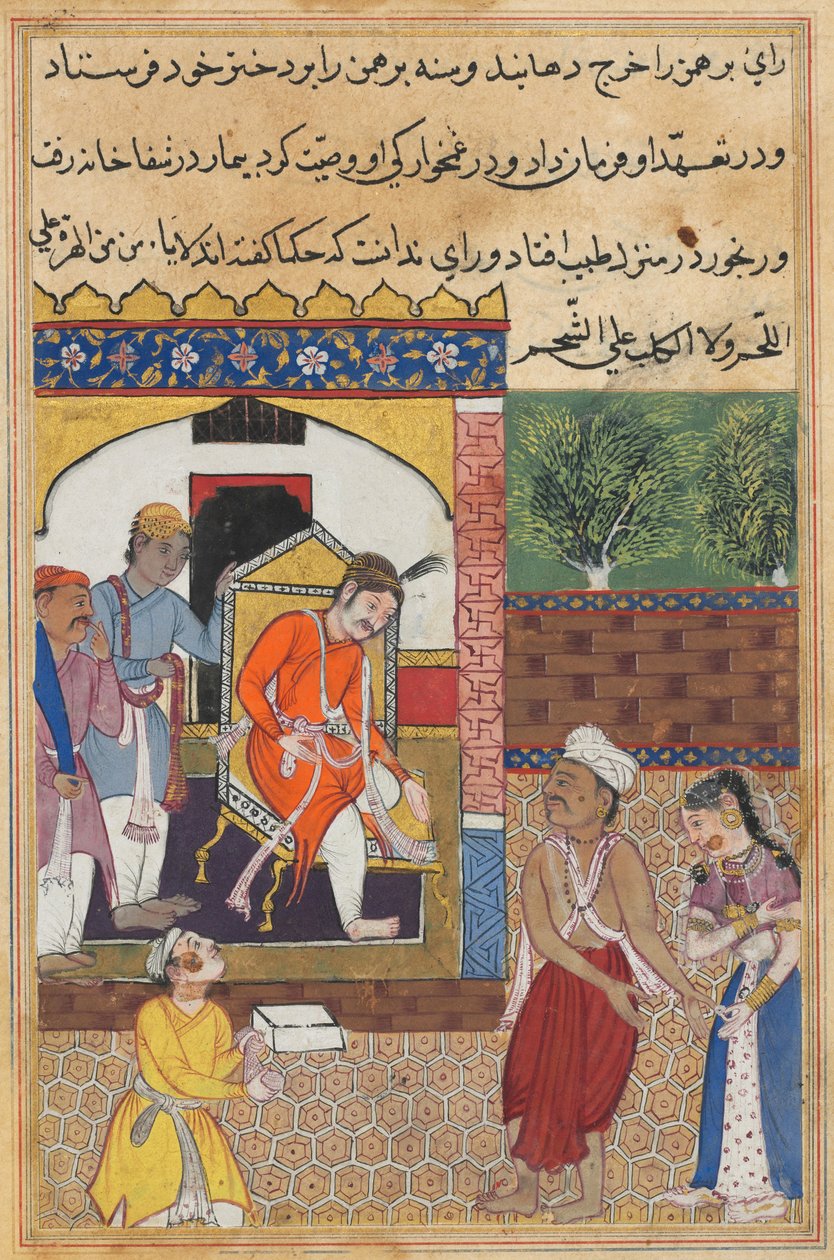 رای برهمن را خرج دهانید و سنه برهمن را بر دختر خود فرستاد
و در تعهّد او فرمان داد و در غمخوارکی او وصیّت کرد بیمار در شفا خانه رفت
و رنجور در منزل طبیب افتاد و رای ندانست که حکما کفته اند لا یا من من الهرّة علي
اللّحم ولا الکلب علي الشّحم